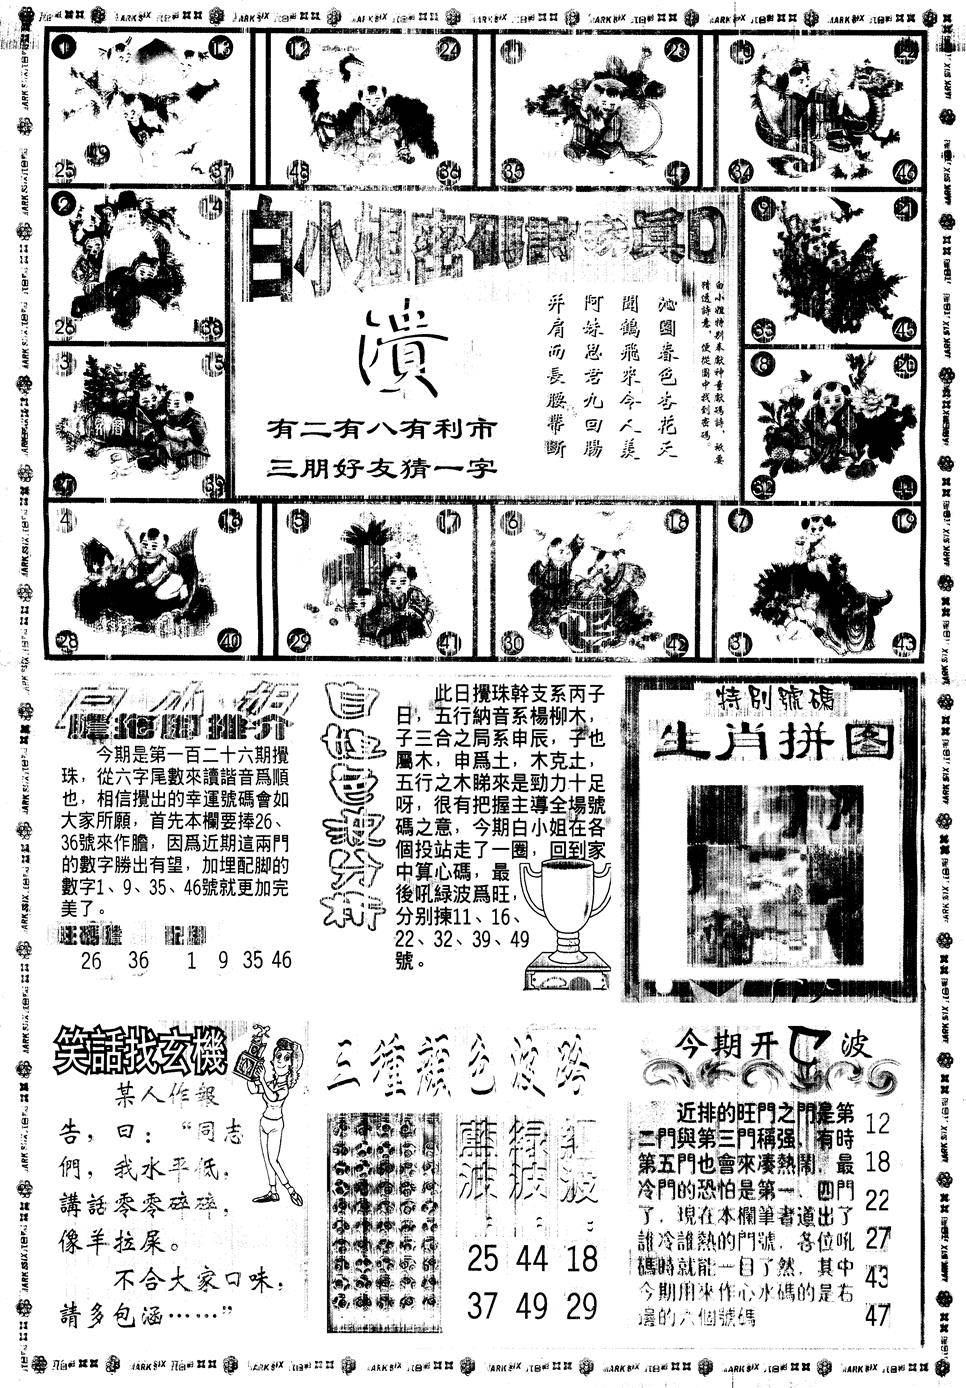 1 13 12 24 11 23 10 22
25 49 37 48 36 35 47 34 46
2 14 9 21
26 38 33 45
3 15 8 20
27 39 32 44
白小姐密碼詩
白小姐特別奉獻神童獻碼詩，祇要
猜透詩意，便從圖中找到密碼。
沁園春色杏花天
聞鶴飛來令人美
阿妹思君九回腸
并肩而長腰帶斷
潰
有二有八有利市
三朋好友猜一字
4 16 5 17 6 18 7 19
28 40 29 41 30 42 31 43
白小姐
今期是第一百二十六期攪
珠，從六字尾數來讀諧音爲順
也，相信攪出的幸運號碼會如
大家所願，首先本欄要捧26、
36號來作膽，因爲近期這兩門
的數字勝出有望，加埋配脚的
數字1、9、35、46號就更加完
美了。
26 36 1 9 35 46
此日攪珠幹支系丙子
日，五行納音系楊柳木，
子三合之局系申辰，子也
屬木，申爲土，木克土，
五行之木睇來是勁力十足
呀，很有把握主導全場號
碼之意，今期白小姐在各
個投站走了一圈，回到家
中算心碼，最
後吼緑波爲旺，
分别揀11、16、
22、32、39、49
號。
特別號碼
生肖拼图
笑話找玄機
某人作報
告，曰：“同志
們，我水平低，
講話零零碎碎，
像羊拉屎。
不合大家口味，
請多包涵……”
三種顏色波路
藍波： 緑波： 紅波：
25 44 18
37 49 29
今期开 波
近排的旺門之門是第
二門與第三門稱强，有時
第五門也會來湊熱鬧，最
冷門的恐怕是第一、四門
了，現在本欄筆者道出了
誰冷誰熱的門號，各位吼
碼時就能一目了然，其中
今期用來作心水碼的是右
邊的六個號碼
12
18
22
27
43
47